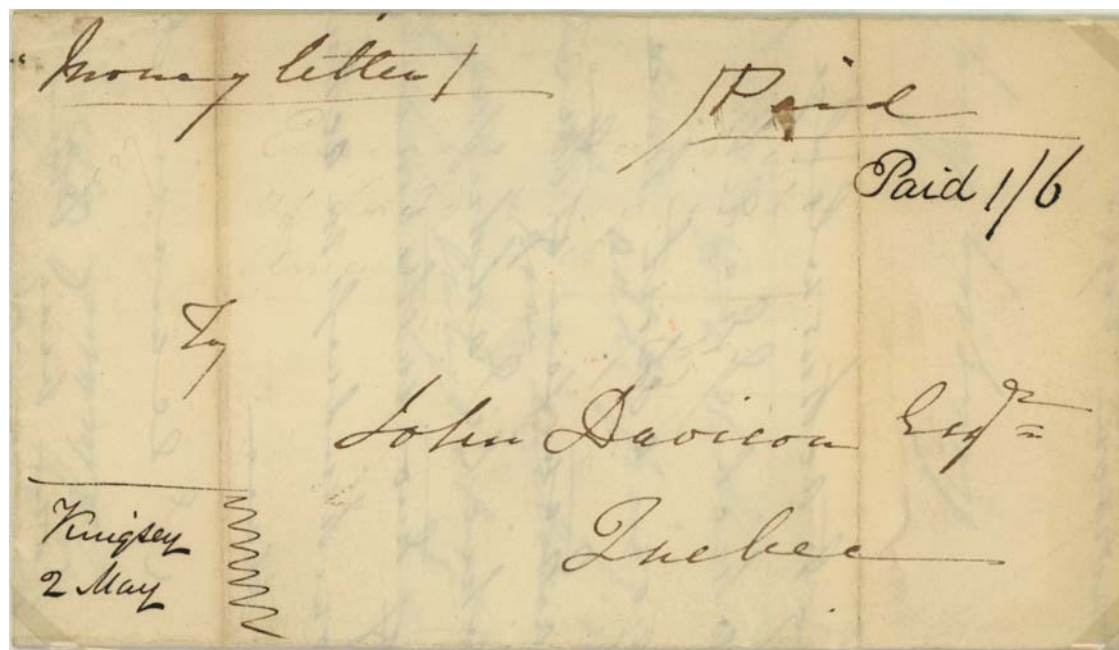 " Money letter /
Paid
Paid 1/6
To
John Davison Esqr
Quebec
Kingsey
2 May